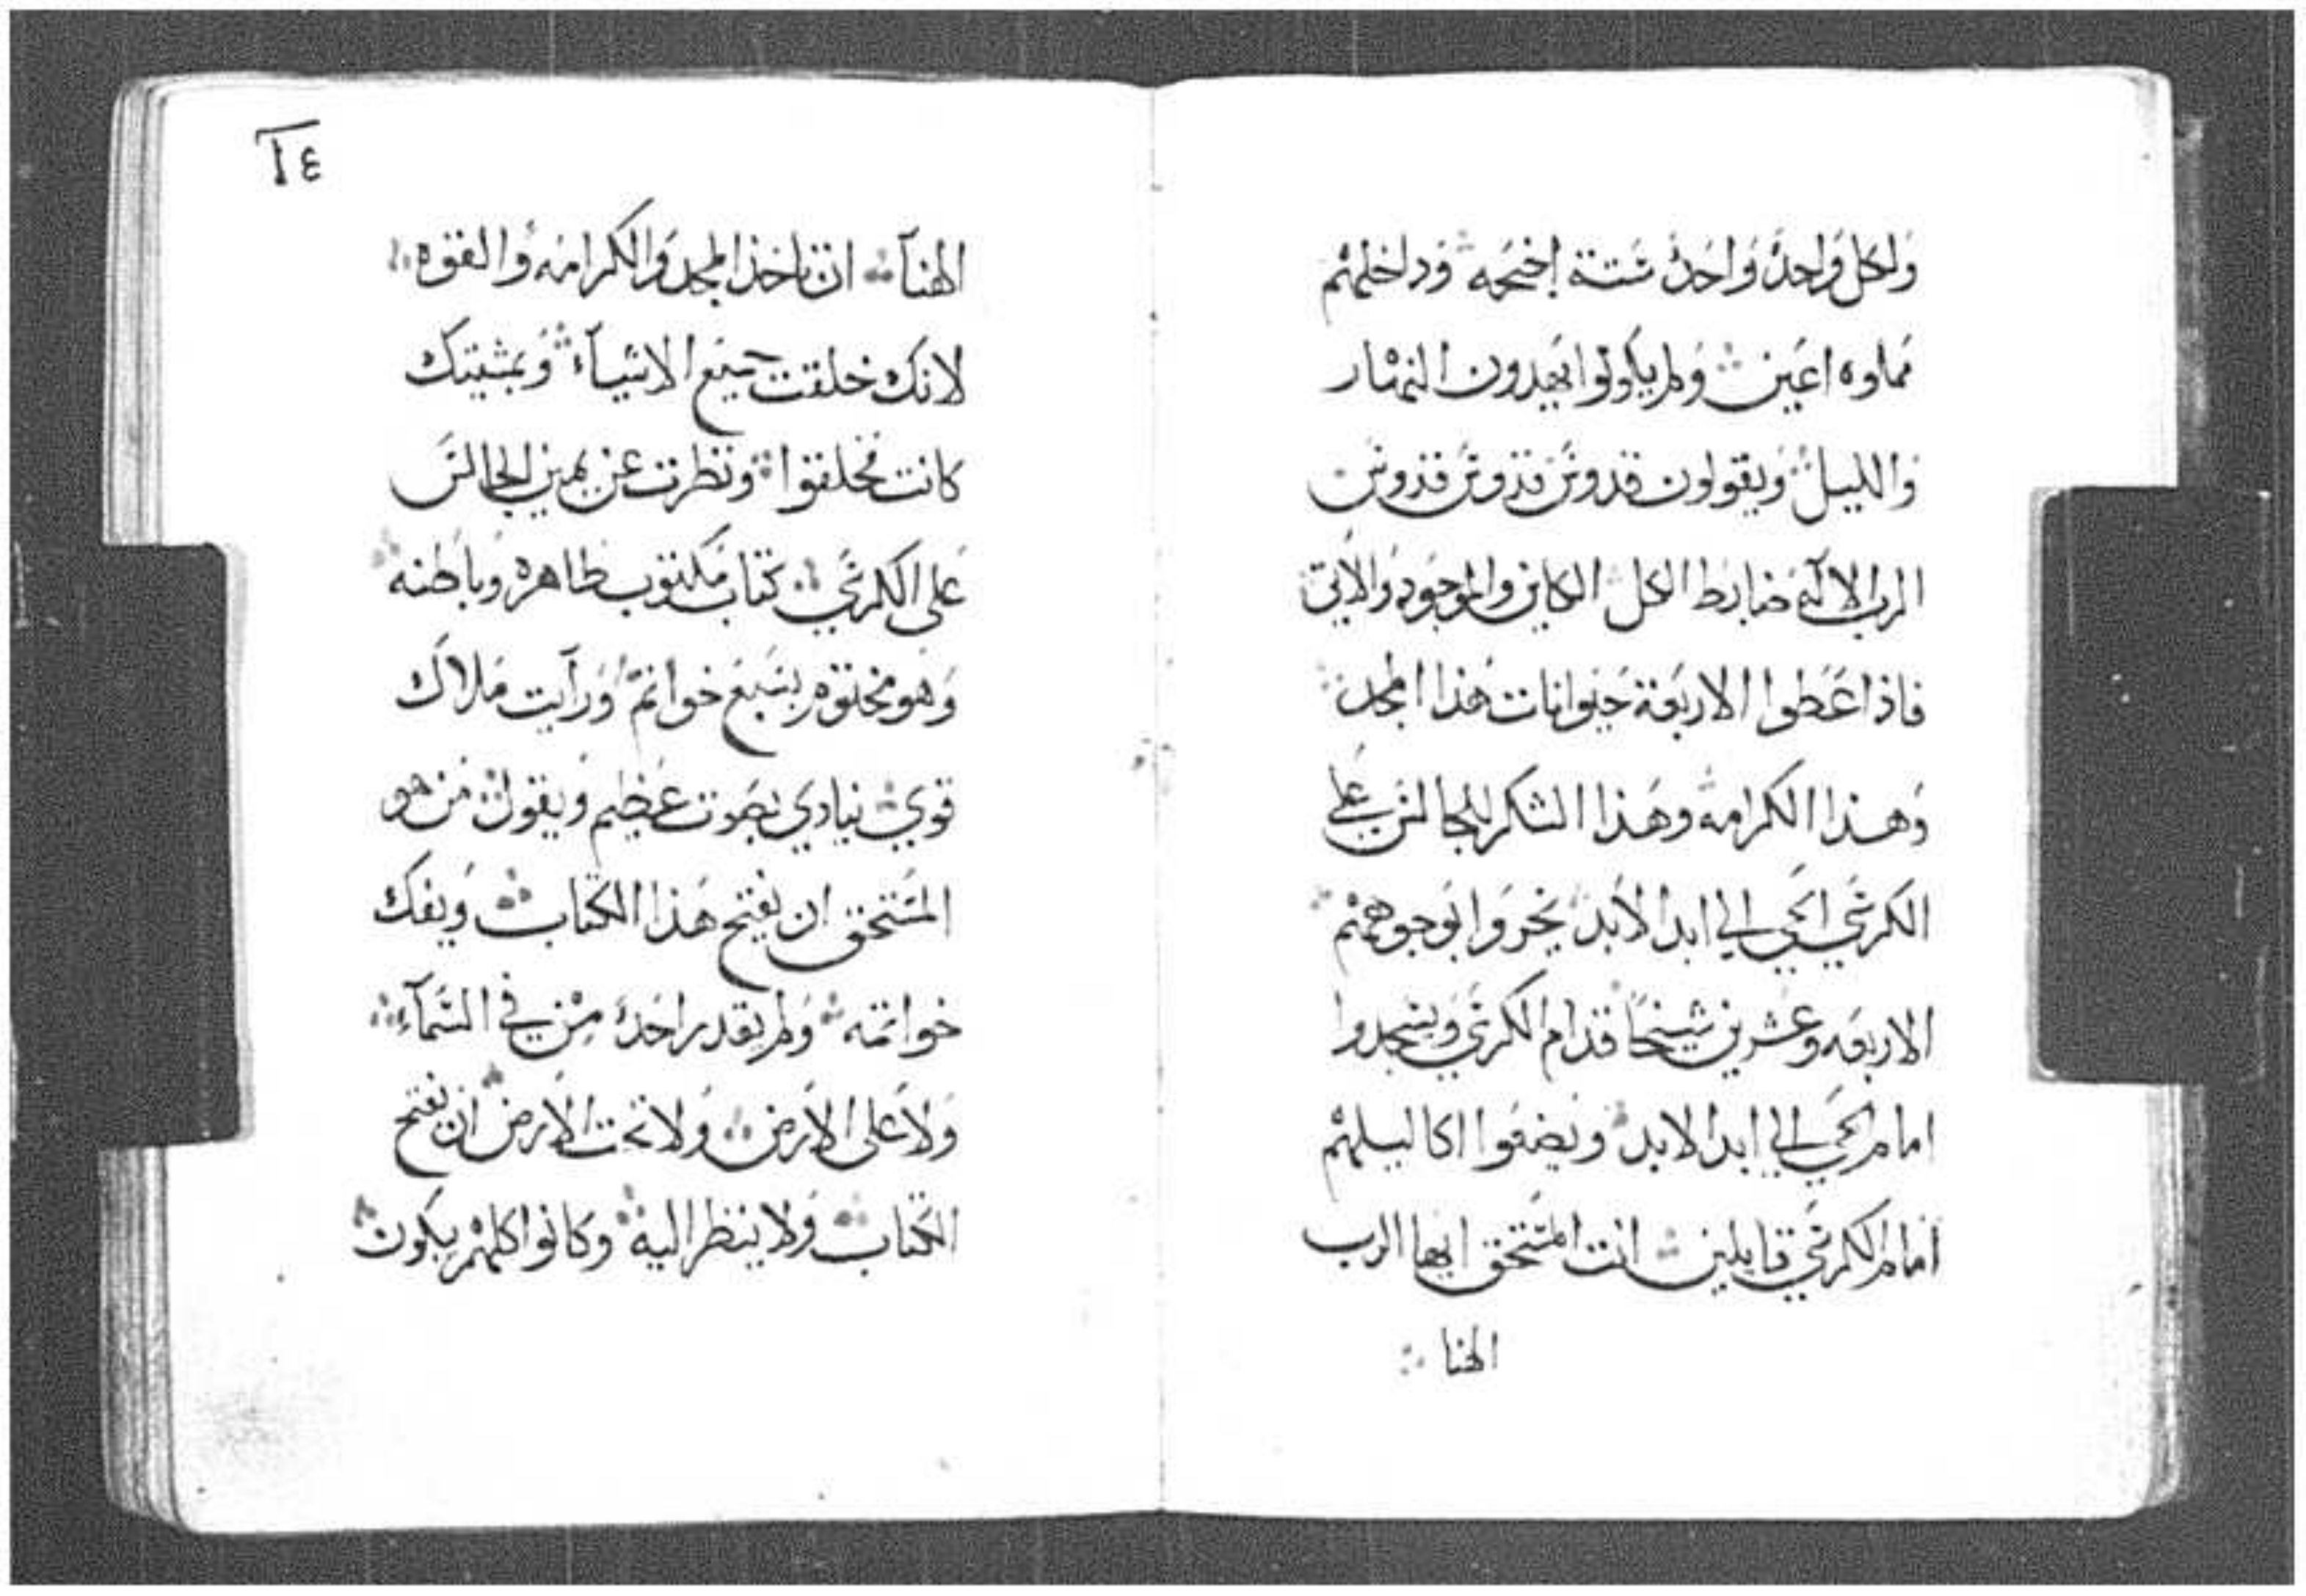 ولكل واحد واحد ستة اجنحه وداخلهم
مماوه اعين ولم يكونوا يهدون النهار
والليل ويقولون قدوس قدوس قدوس
الرب الاله ضابط الكل الكاين والموجود والاتي
فاذا اعطوا الاربعة حيوانات هذا المجد
وهذا الكرامه وهذا الشكر للجالس على
الكرسي الحي الي ابد الابد يخروا بوجوههم
الاربعه وعشرين شيخا قدام الكرسي ويسجدوا
امام الحي الي ابد الابد ويضعوا اكاليلهم
امام الكرسي قايلين انت المستحق ايها الرب
الهنا
١٤
الهنآ ان تاخذ المجد والكرامه والقوه
لانك خلقت جميع الاشيآء وبمشيتك
كانت مخلقوا ونظرت عن يمين الجالس
على الكرسي كتاب مكتوب ظاهره وباطنه
وهو مختوم بسبع خواتم ورآيت ملاك
قوي ينادي بصوت عظيم ويقول من هو
المستحق ان يفتح هذا الكتاب ويفك
خواتمه ولم يقدر احد من في السمآء
ولا على الارض ولا تحت الارض ان يفتح
الكتاب ولا ينظر اليه وكانوا كلهم يبكون